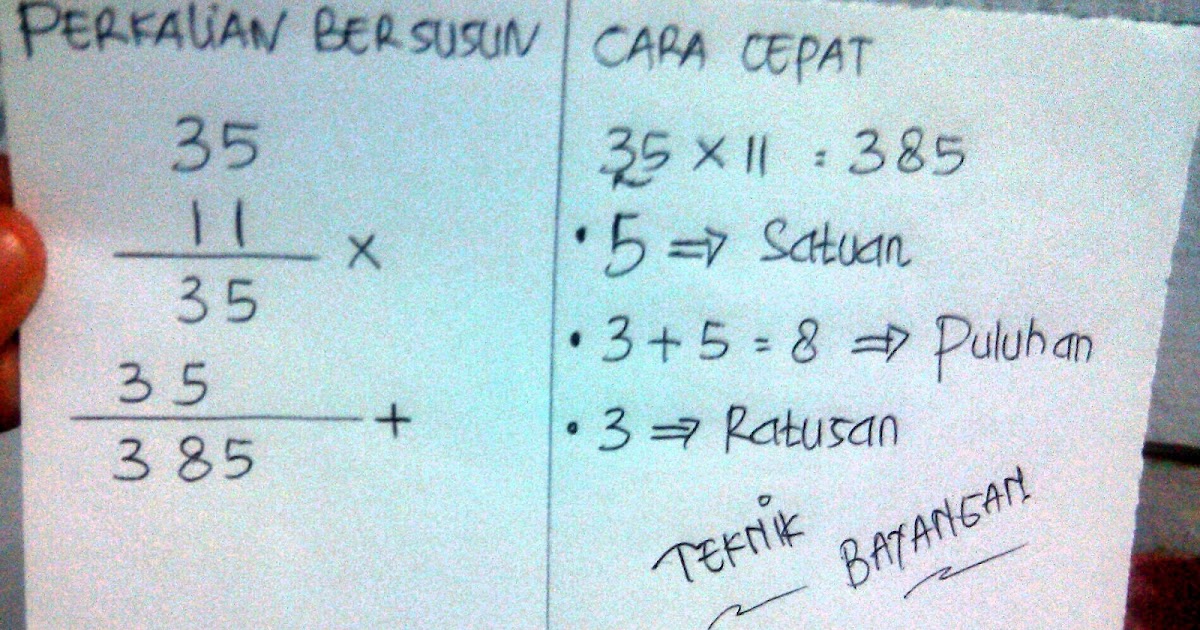 PERKALIAN BERSUSUN
35
11 ×
35
35 +
385
CARA CEPAT
35 × 11 = 385
• 5 ⇒ Satuan
• 3 + 5 = 8 ⇒ Puluhan
• 3 ⇒ Ratusan
TEKNIK BAYANGAN